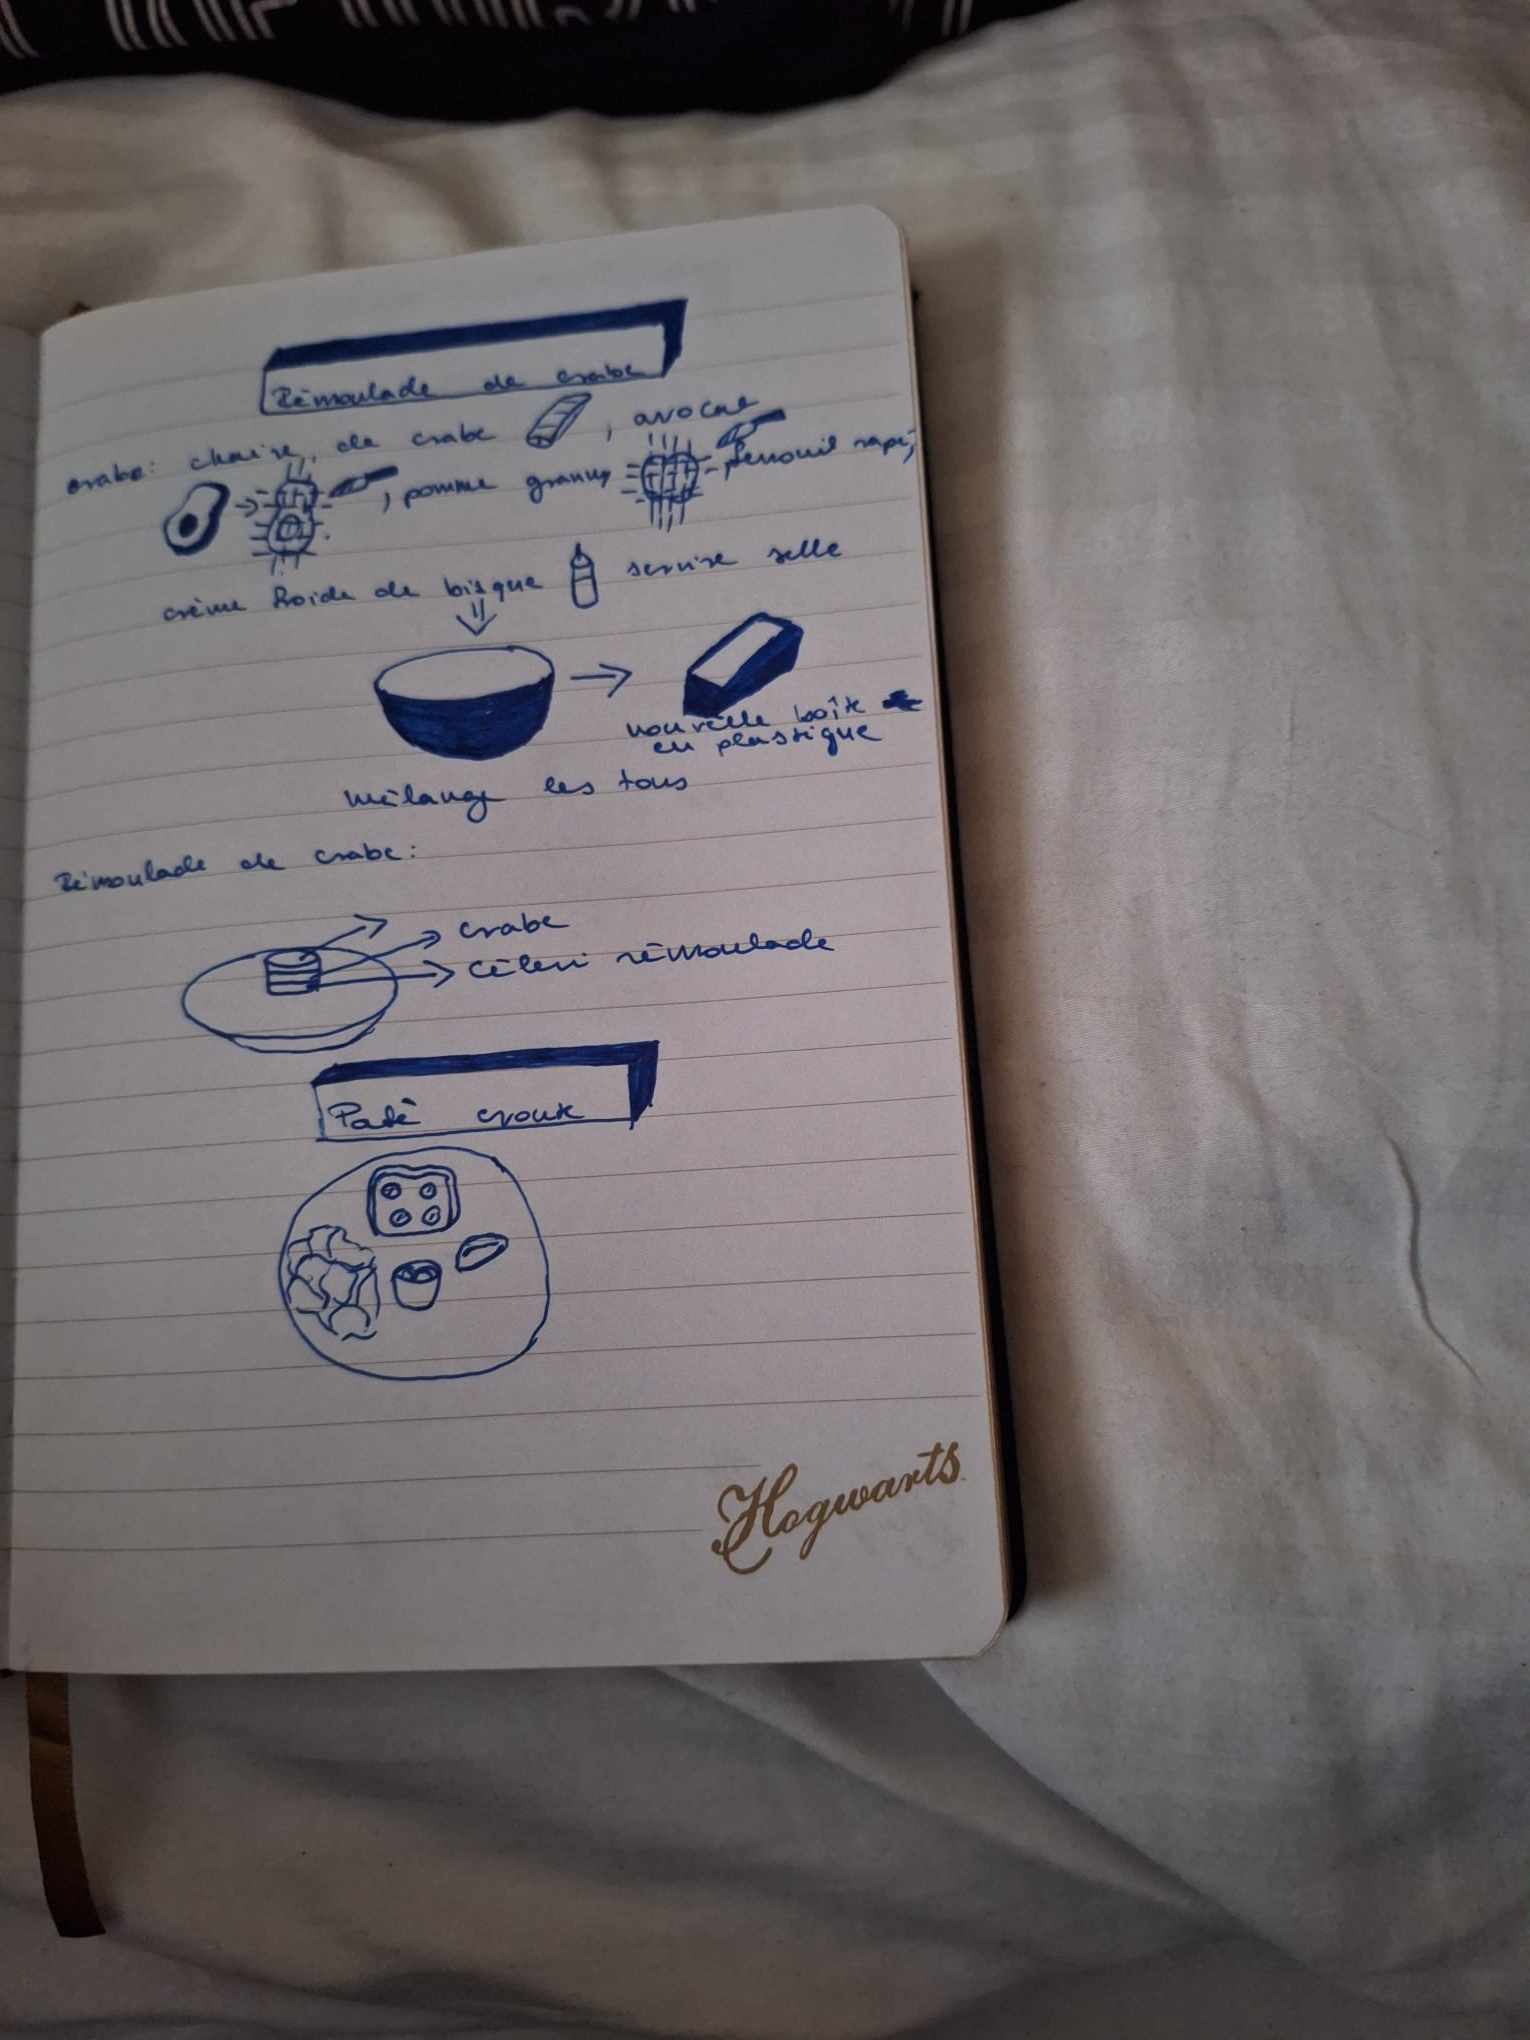 Rémoulade de crabe
crabe: chaire, de crabe , avocat
, pomme granny fenouil rapé,
crème froide de bisque service salle
nouvelle boîte
en plastique
mélange les tous
Rémoulade de crabe:
crabe
Céleri rémoulade
Paté croute
Hogwarts